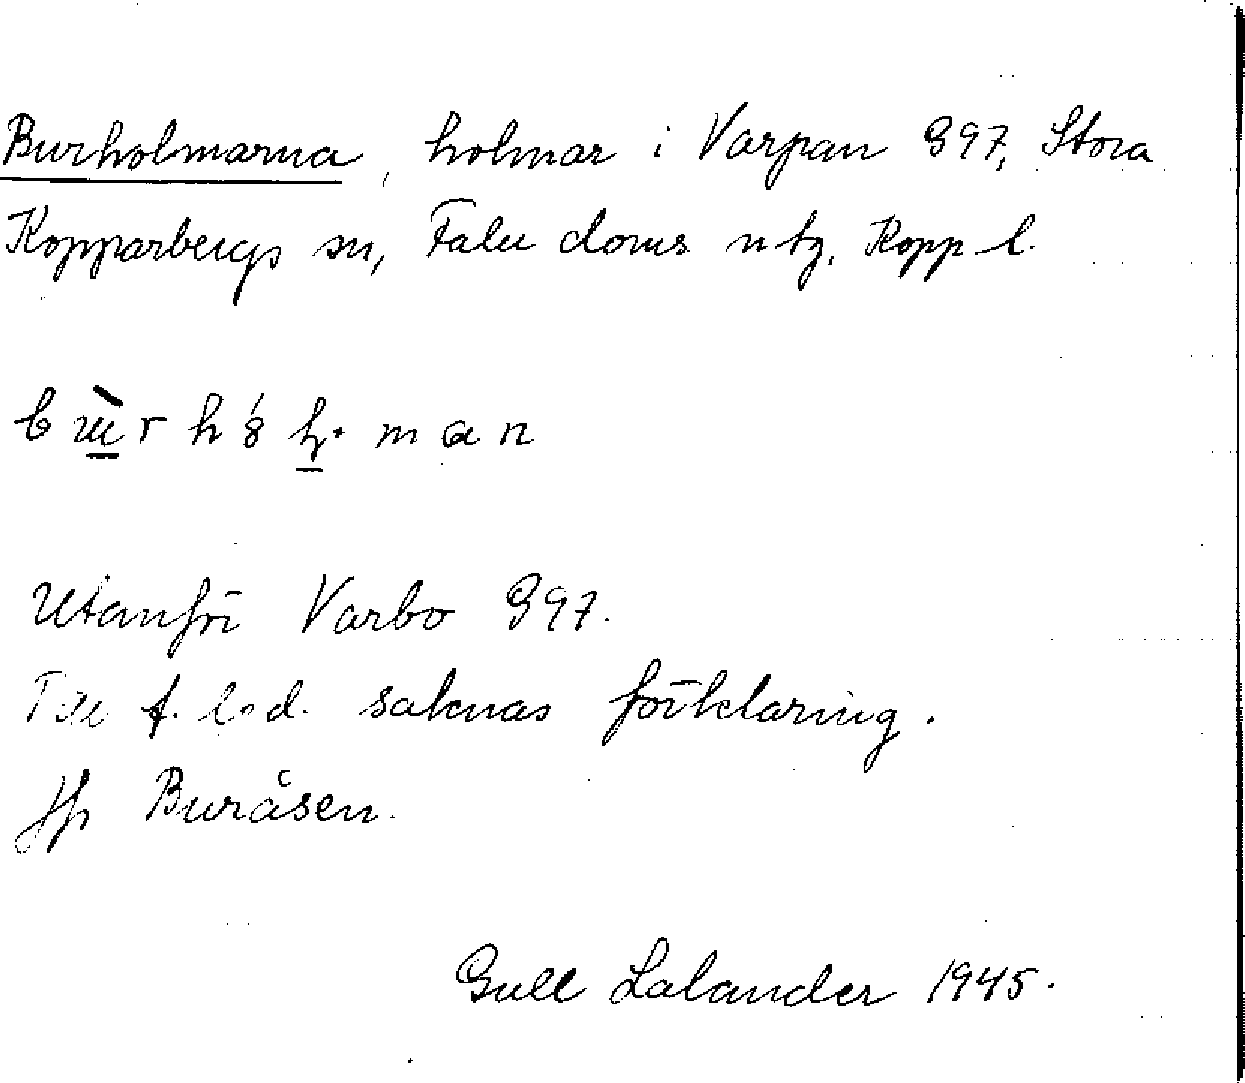 Burholmarna, holmar i Varpan G97, Stora
Kopparbergs sn, Falu doms ntg, Kopp l.
Utanför Varbo G97.
Till f. led. saknas förklaring.
Jfr Buråsen.
Gull Lalander 1945.